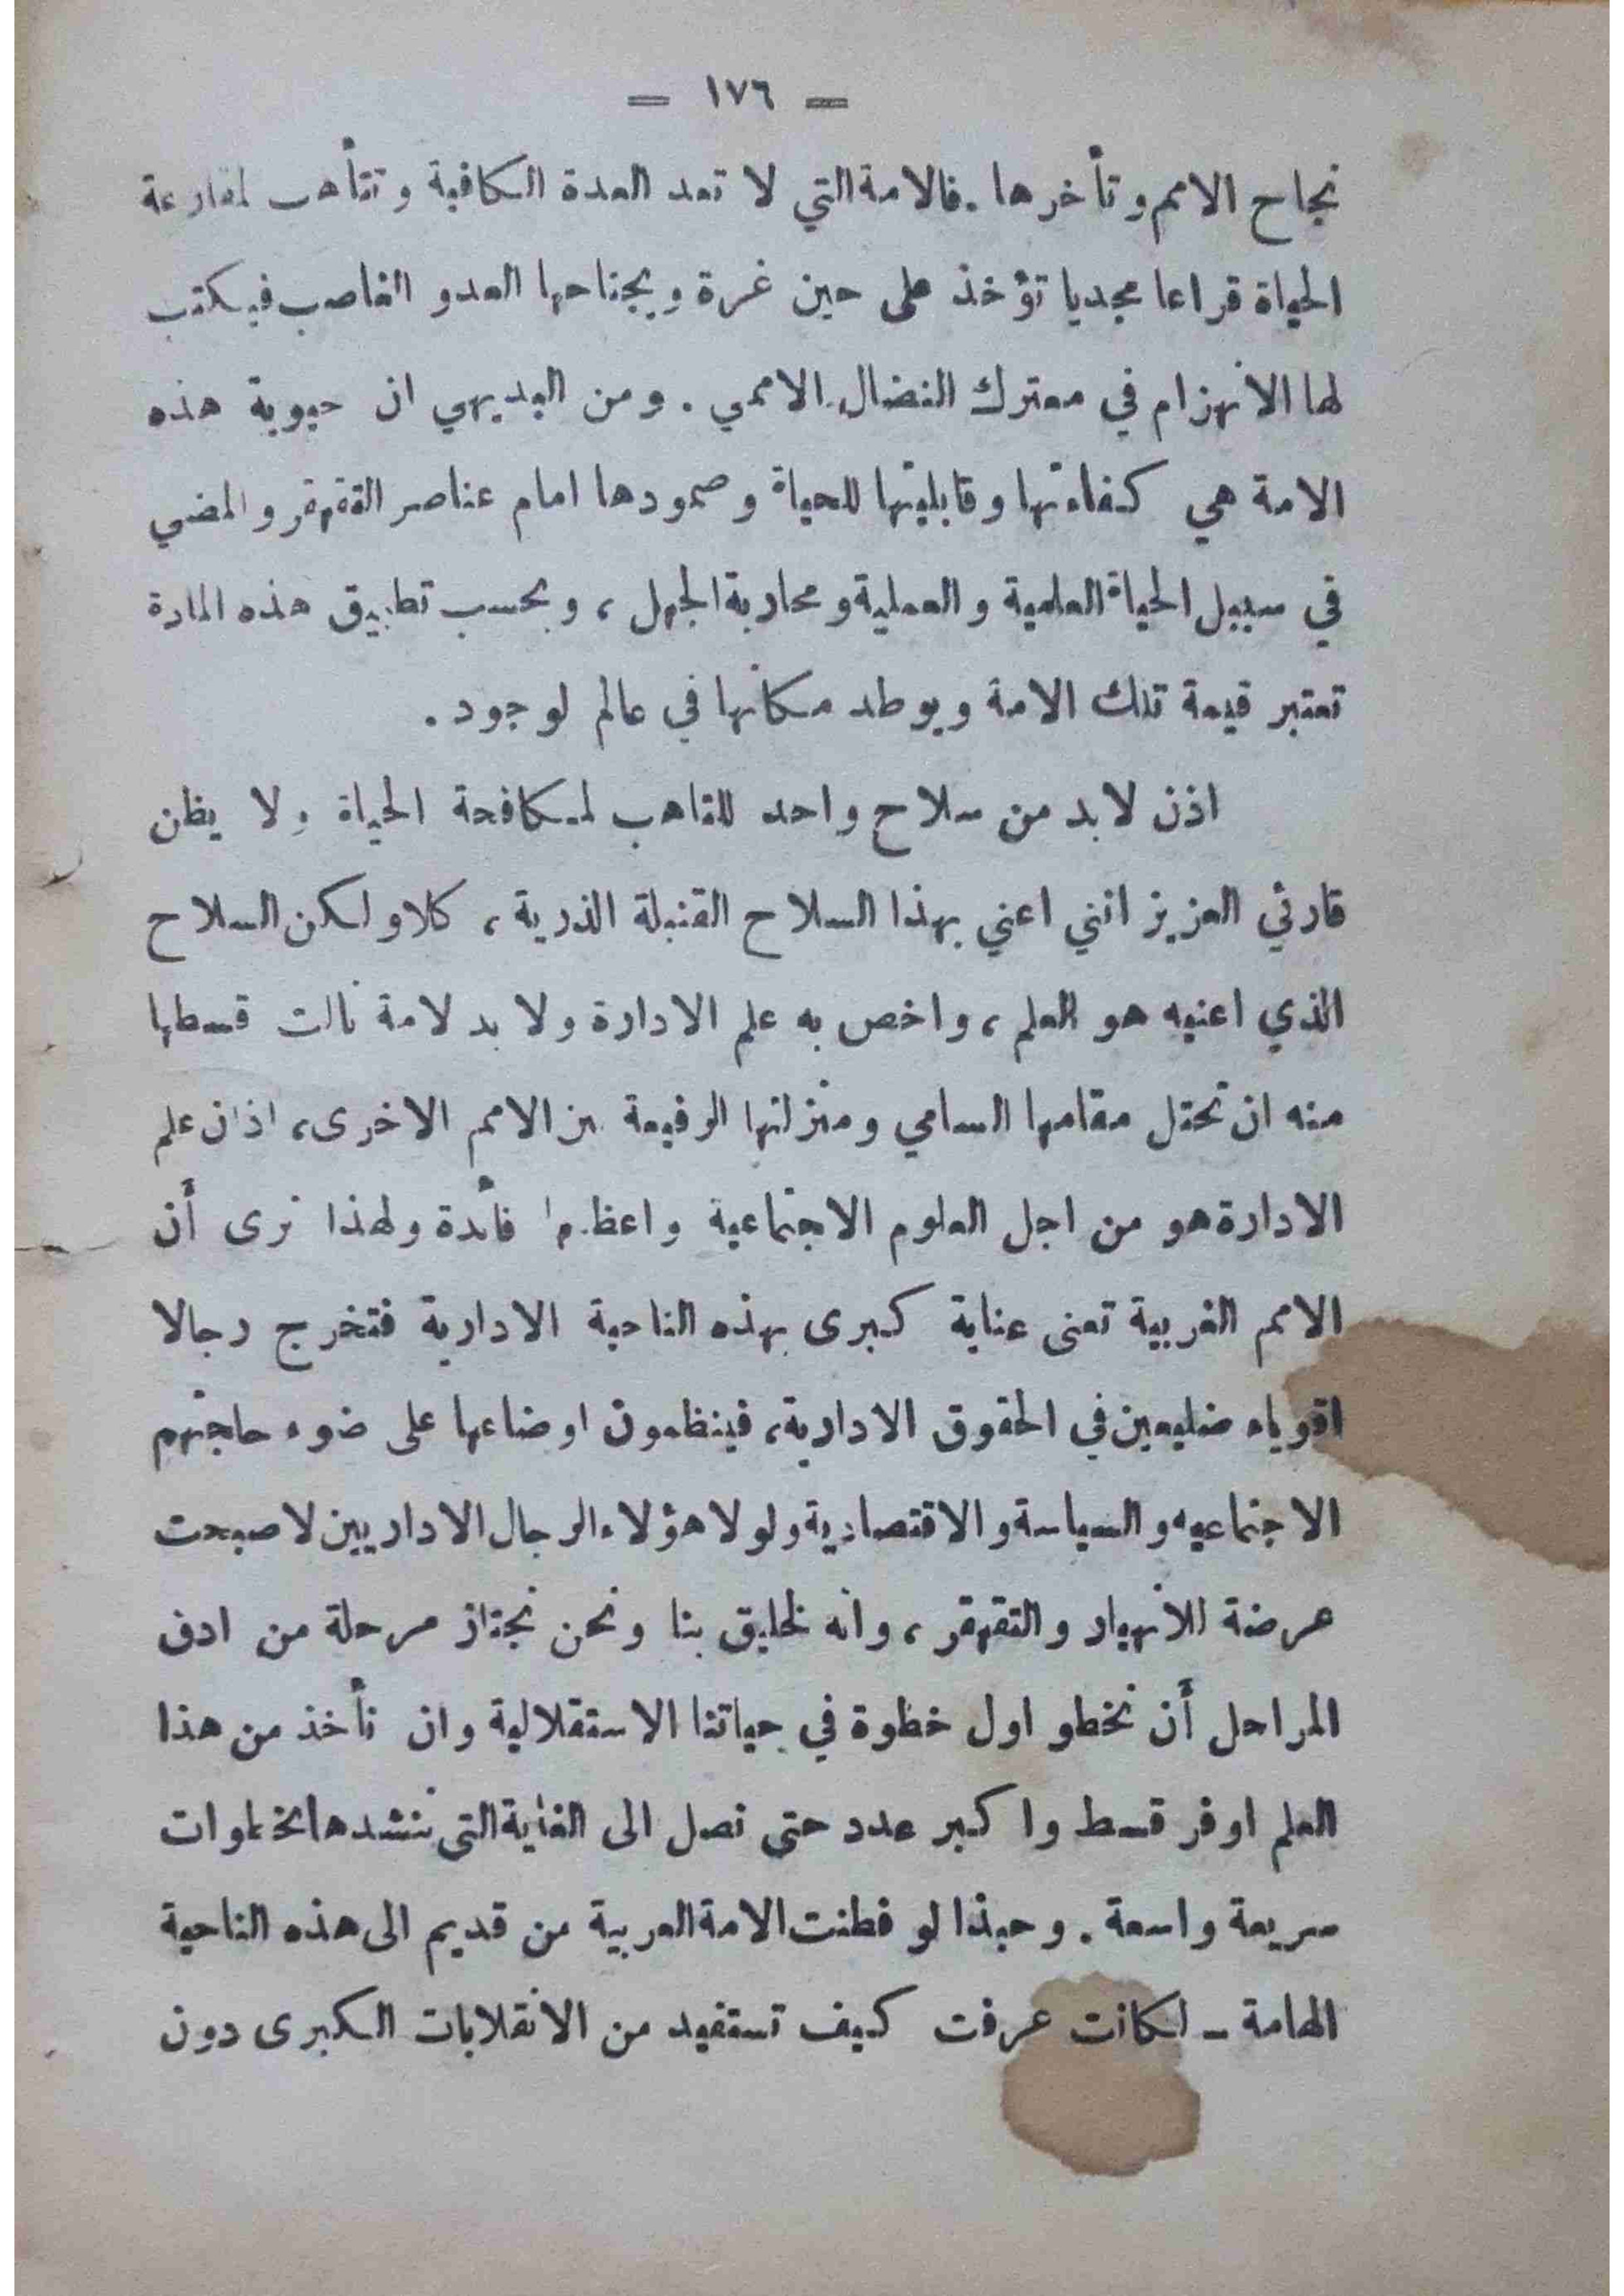 — ١٧٦ —
نجاح الامم وتأخرها . فالامة التي لا تعد العدة الكافية وتتأهب لمقارعة
الحياة قراعا مجديا تؤخذ على حين غرة ويجتاحها العدو الغاصب فيكتب
لها الانهزام في معترك النضال الاممي . ومن البديهي ان حيوية هذه
الامة هي كفاءتها وقابليتها للحياة وصمودها امام عناصر التقهقر والمضي
في سبيل الحياة العلمية والعملية ومحاربة الجهل ، وبحسب تطبيق هذه المادة
تعتبر قيمة تلك الامة ويوطد مكانها في عالم لوجود .
اذن لابد من سلاح واحد للتاهب لمكافحة الحياة ولا يظن
قارئي العزيز انني اعني بهذا السلاح القنبلة الذرية ، كلا ولكن السلاح
الذي اعنيه هو العلم ، واخص به علم الادارة ولا بد لامة نالت قسطها
منه ان تحتل مقامها السامي ومنزلتها الرفيعة بين الامم الاخرى ، اذ ان علم
الادارة هو من اجل العلوم الاجتماعية واعظمها فائدة ولهذا نرى أن
الامم الغربية تعنى عناية كبرى بهذه الناحية الادارية فتخرج رجالا
اقوياء ضليعين في الحقوق الادارية ، فينظمون اوضاعها على ضوء حاجتهم
الاجتماعيه والسياسة والاقتصادية ولولا هؤلاء الرجال الاداريين لاصبحت
عرضة للانهيار والتقهقر ، وانه لخليق بنا ونحن نجتاز مرحلة من ادق
المراحل أن نخطو اول خظوة في حياتنا الاستقلالية وان نأخذ من هذا
العلم اوفر قسط واكبر عدد حتى نصل الى الغاية التي ننشدها بخطوات
سريعة واسعة . وحبذا لو فطنت الامة العربية من قديم الى هذه الناحية
الهامة – لكانت عرفت كيف تستفيد من الانقلابات الكبرى دون